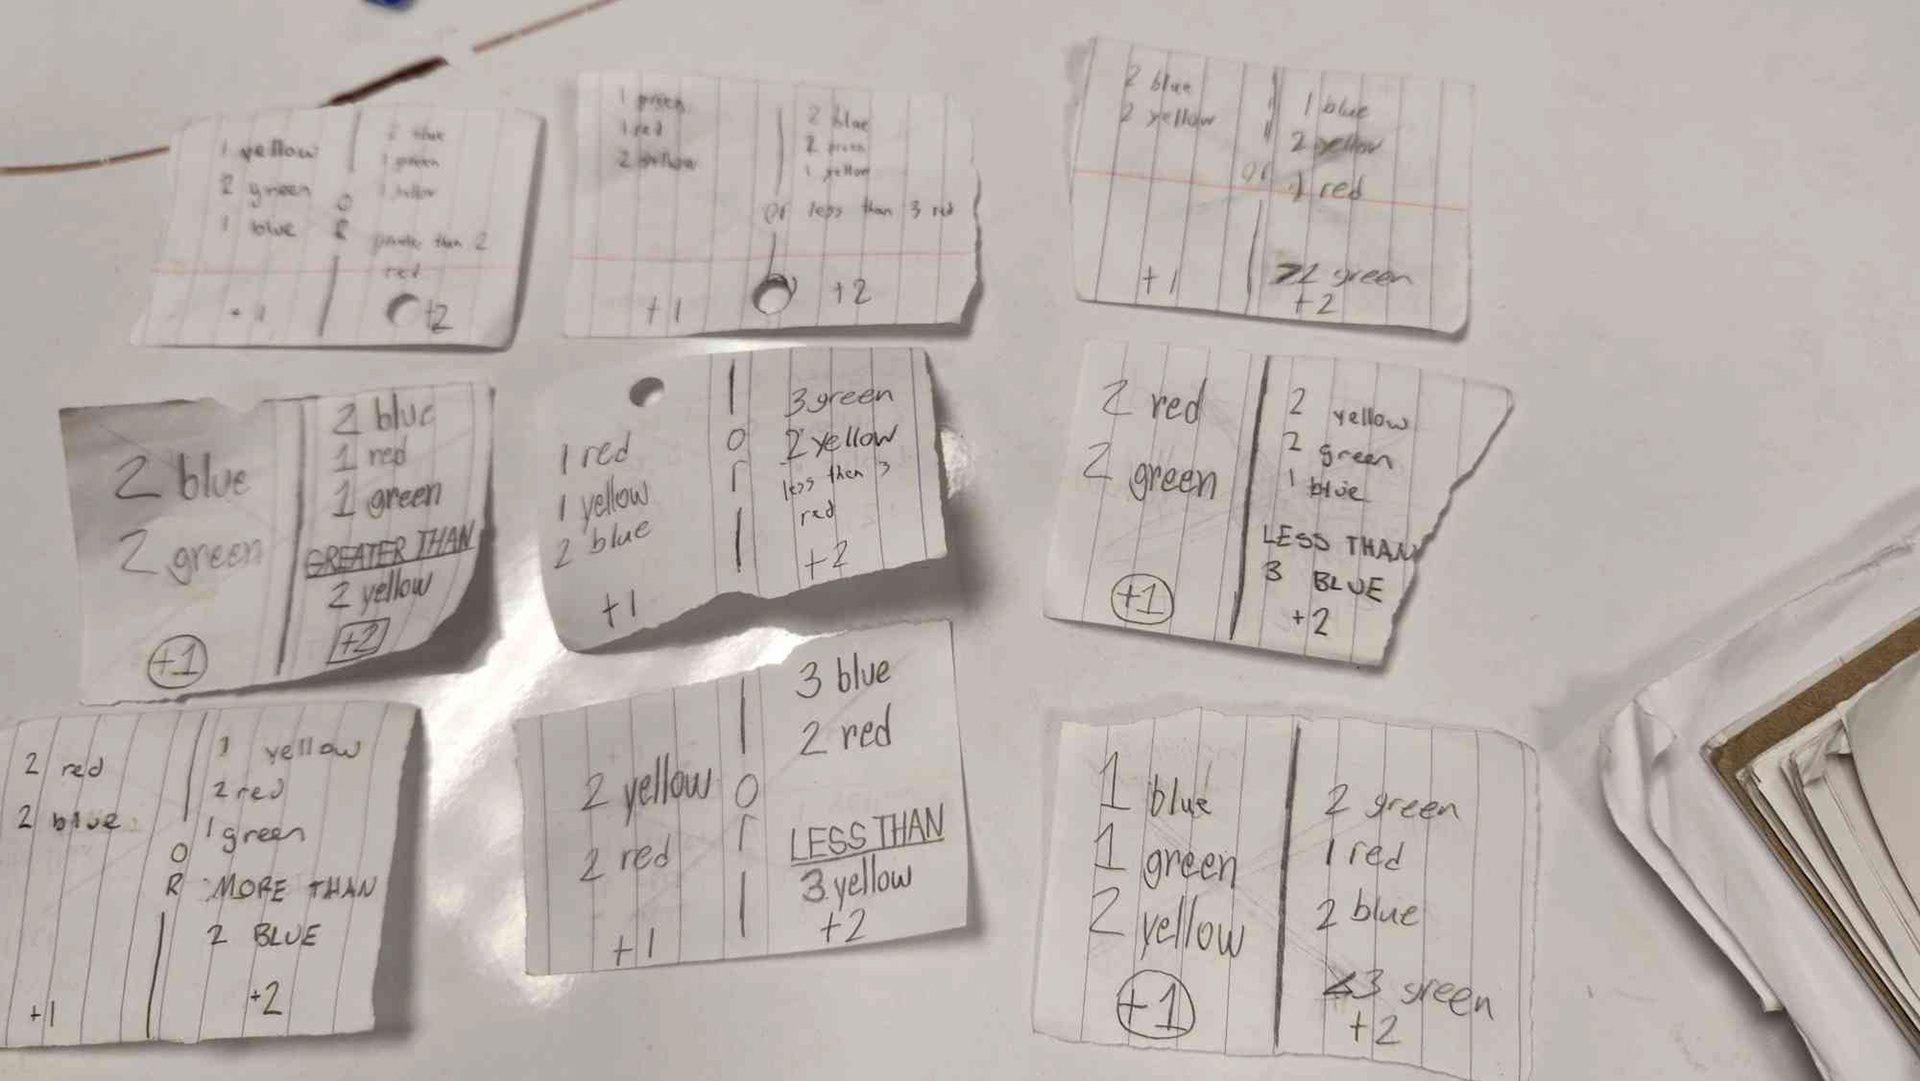 1 yellow
2 green
1 blue
+1
O
R
2 blue
1 green
1 yellow
greater than 2
red
+2
1 green
1 red
2 yellow
+1
2 blue
2 green
1 yellow
or less than 3 red
+2
2 blue
2 yellow
+1
or
1 blue
2 yellow
1 red
green
+2
2 blue
2 green
+1
2 blue
1 red
1 green
GREATER THAN
2 yellow
+2
1 red
1 yellow
2 blue
+1
o
r
3 green
2 yellow
less then 3
red
+2
2 red
2 green
+1
2 yellow
2 green
1 blue
LESS THAN
3 BLUE
+2
2 red
2 blue
+1
O
R
1 yellow
2 red
1 green
MORE THAN
2 BLUE
+2
2 yellow
2 red
+1
o
r
3 blue
2 red
LESS THAN
3 yellow
+2
1 blue
1 green
2 yellow
+1
2 green
1 red
2 blue
<3 green
+2